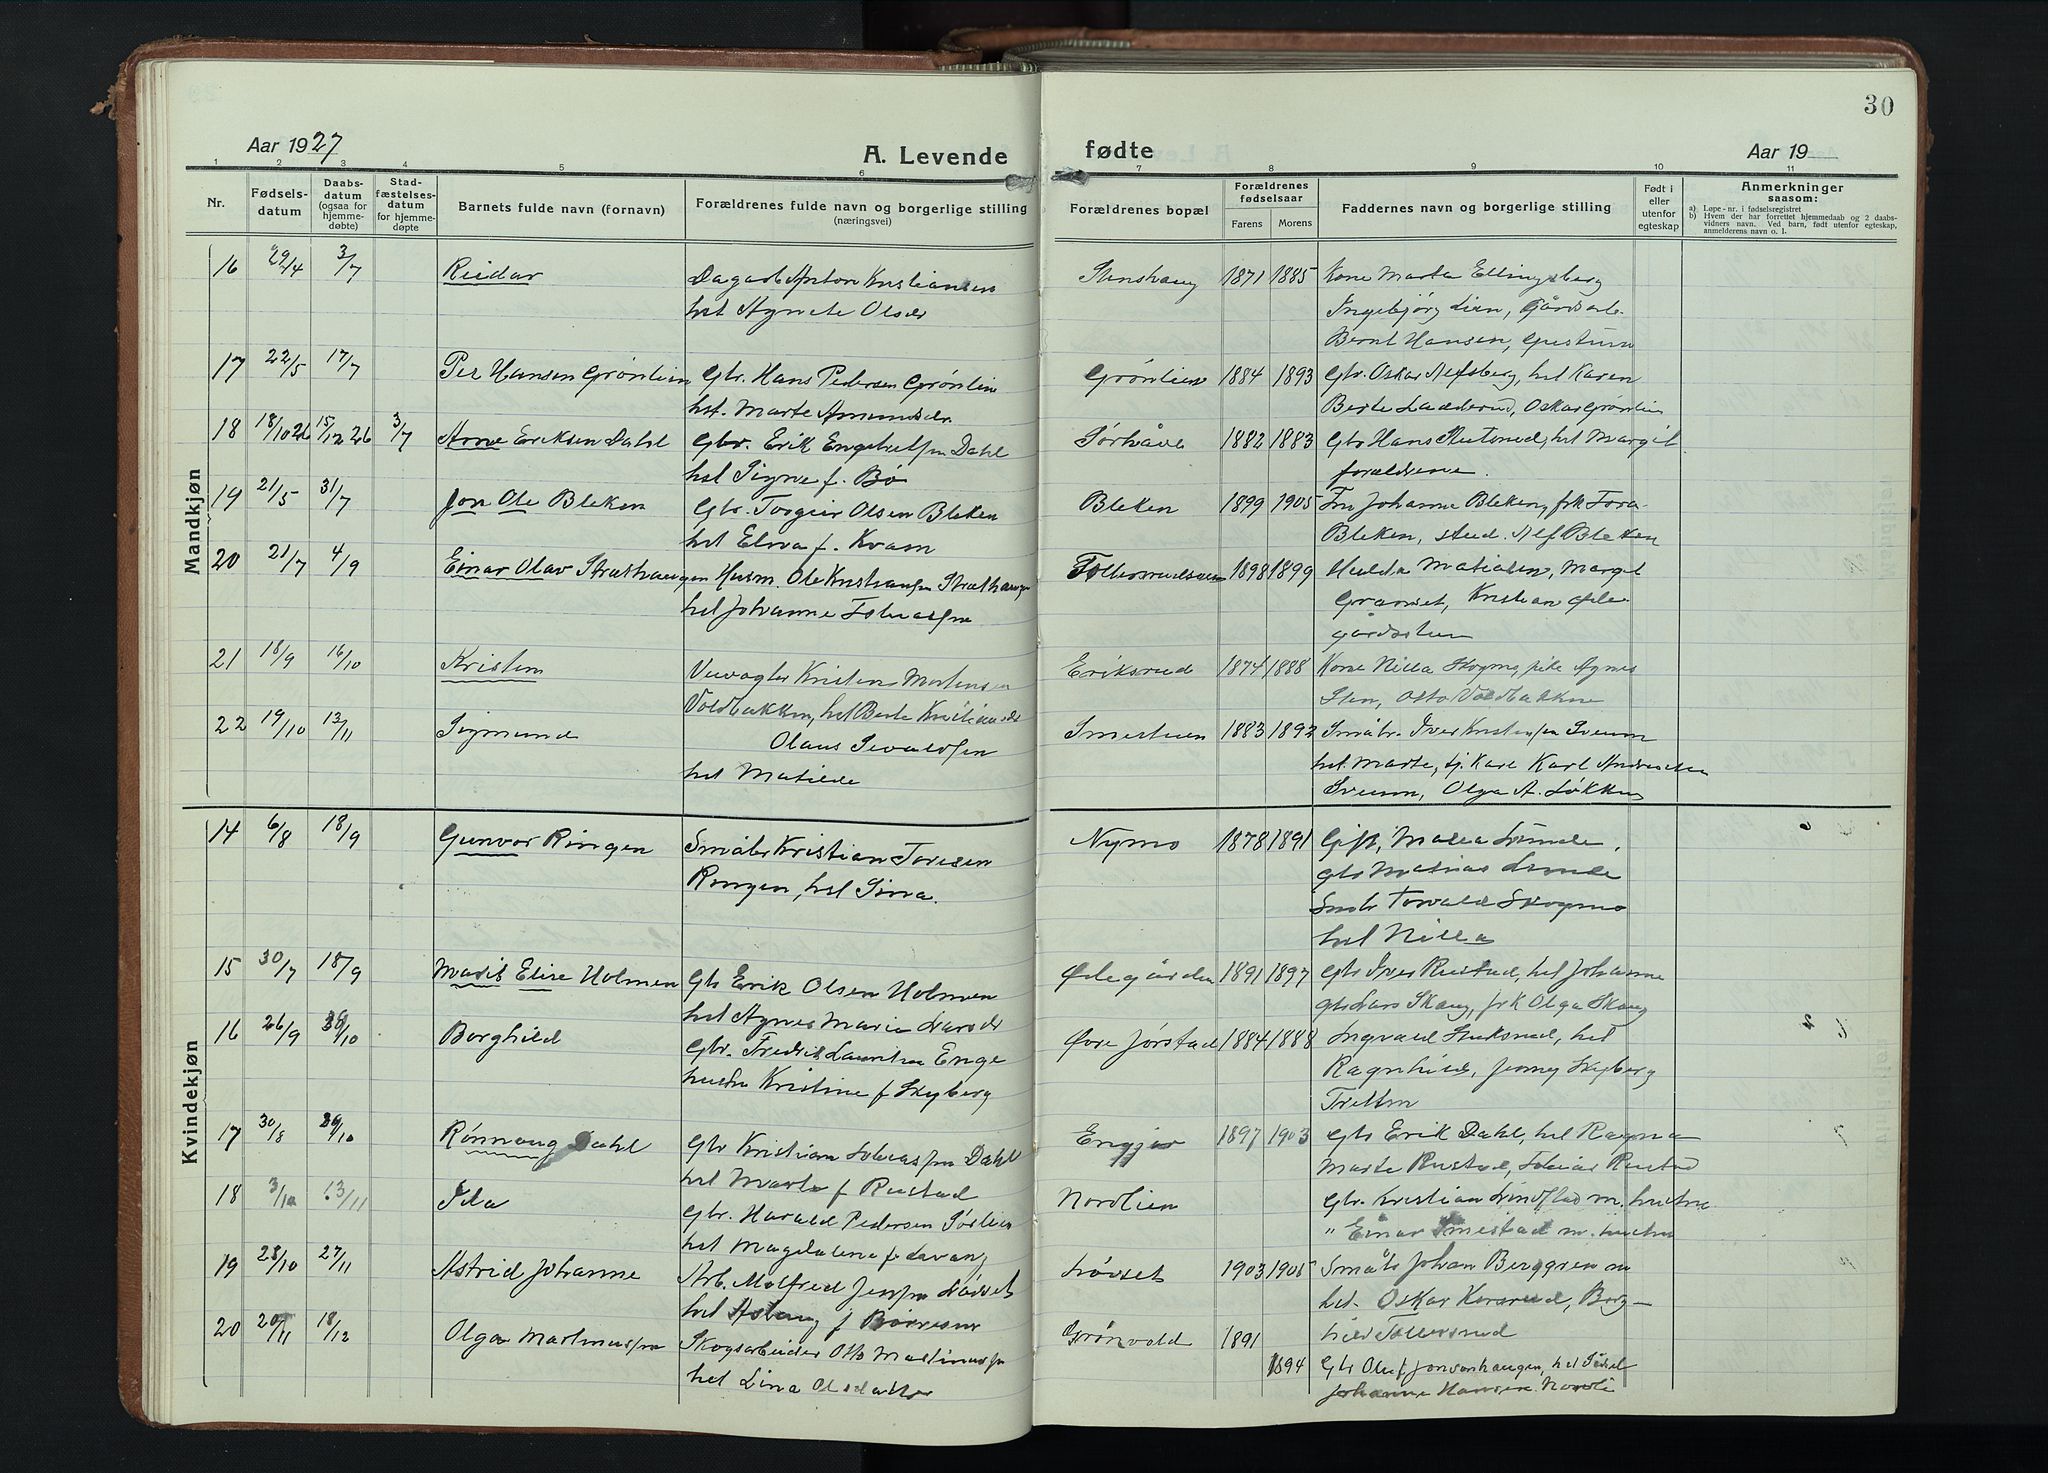 30
Aar 1927
A. Levende
fødte
Aar 19
1 2 3 4 5 6 7 8 9 10 11
Nr.
Fødsels-
datum
Daabs-
datum
(ogsaa for
hjemme-
døbte)
Stad-
fæstelses-
datum
for hjemme-
døpte
Barnets fulde navn (fornavn)
Forældrenes fulde navn og borgerlige stilling
(næringsvei)
Forældrenes bopæl
Forældrenes
fødselsaar
Farens Morens
Faddernes navn og borgerlige stilling
Født i
eller
utenfor
egteskap
Anmerkninger
saasom:
a) Løpe-nr. i fødselsregistret
b) Hvem der har forrettet hjemmedaab og 2 daabs-
vidners navn. Ved barn, født utenfor egteskap,
anmelderens navn o. l.
Mandkjøn
16 29/4 3/7 Reidar Dagarb. Anton Kristiansen Stenshaug 1871 1885 Kone Marta Ellingsberg
hst Agnete Olsdr Ingebjørg Lien, Gårdsarb.
Bernt Hansen,
17 22/5 17/7 Per Hansen Grønlien Gbr. Hans Pedersen Grønlien Grønlien 1884 1893 Gbr. Oskar Alfsberg, hst Karen
hst. Marte Amundsdr. Berte Ladderud, Oskar Grønlien
18 18/10 26 15/12 26 3/7 Arne Eriksen Dahl Gbr. Erik Engebretsen Dahl Sørhåve 1882 1883 Gbr Hans Stutsrud, hst Margit
hst Signe f. Bø forældrene.
19 21/5 31/7 Jon Ole Bleken Gbr. Torgeir Olsen Bleken Bleken 1899 1905 Fru Johanne Bleken, frk Tora
hst Elna f. Kvam Bleken, stud. Alf Bleken
20 21/7 4/9 Einar Olav Stræthaugen Husm. Ole Kristiansen Stræthaugen Tollersrudsveen 1898 1899 Hulda Matiasen, Margit
hst Johanne Tobiassen Granset, Kristian Øde-
gårdsstuen
21 18/9 16/10 Kristen Veivogter Kristen Mortensen Eriksrud 1874 1888 Kone Nilla Skogmo, pike Agnes
Voldbakken, hst Berte Kristiansdr Sten, Otto Voldbakken
22 19/10 13/11 Sigmund Olaus Sevaldsen Smestuen 1883 1892 Småbr. Iver Kristensen Sveum
hst Matilde hst. Marte, Karl Andreassen
Sveum, Olga A. Løkken
Kvindekjøn
14 6/8 18/9 Gunvor Ringen Småbr Kristian Toresen Nymo 1878 1891 Gift, Malea Linde,
Ringen, hst Sina. gbr Matias Linde
Småbr Torvald Skogmo
hst Nilla
15 30/7 18/9 Marit Elise Holmen Gbr Erik Olsen Holmen Ødegården 1891 1897 Gbr Iver Rustad, hst Johanne
hst Agnes Marie Larsdr gbr Lars Skaug, frk Olga Skaug
16 26/9 30/10 Borghild Gbr. Fredrik Lauritsen Enge Øvre Jørstad 1884 1888 Ingvald Stuksrud, hst
hustru Kristine f Skyberg Ragnhild, Jenny Skyberg
Tretten
17 30/8 30/10 Rønnaug Dahl Gbr Kristian Tobiassen Dahl Engjar 1897 1903 Gbr Erik Dahl, hst Ragna
hst Marte f Rustad Marte Rustad, Tobias Rustad
18 3/10 13/11 Ida Gbr. Harald Pedersen Sørlien Nordlien Gbr. Kristian Lindstad m. hustru
hst Magdalene f. Lavang " Einar Smestad m. hustru
19 28/10 27/11 Astrid Johanne Arb. Molfred Jenssen Løvset Løvset 1903 1905 Småbr Johan Berggren m
hst Aslaug f Børresen hst. Oskar Korsrud, Borg-
hild Tollersrud
20 20/11 18/12 Olga Martinussen Skogsarbeider Otto Martinussen Grønvold 1891
hst Lina Olsdatter 1894 Gbr Oluf Jonsvenhaugen, hst
Johanne Hansen Nordli